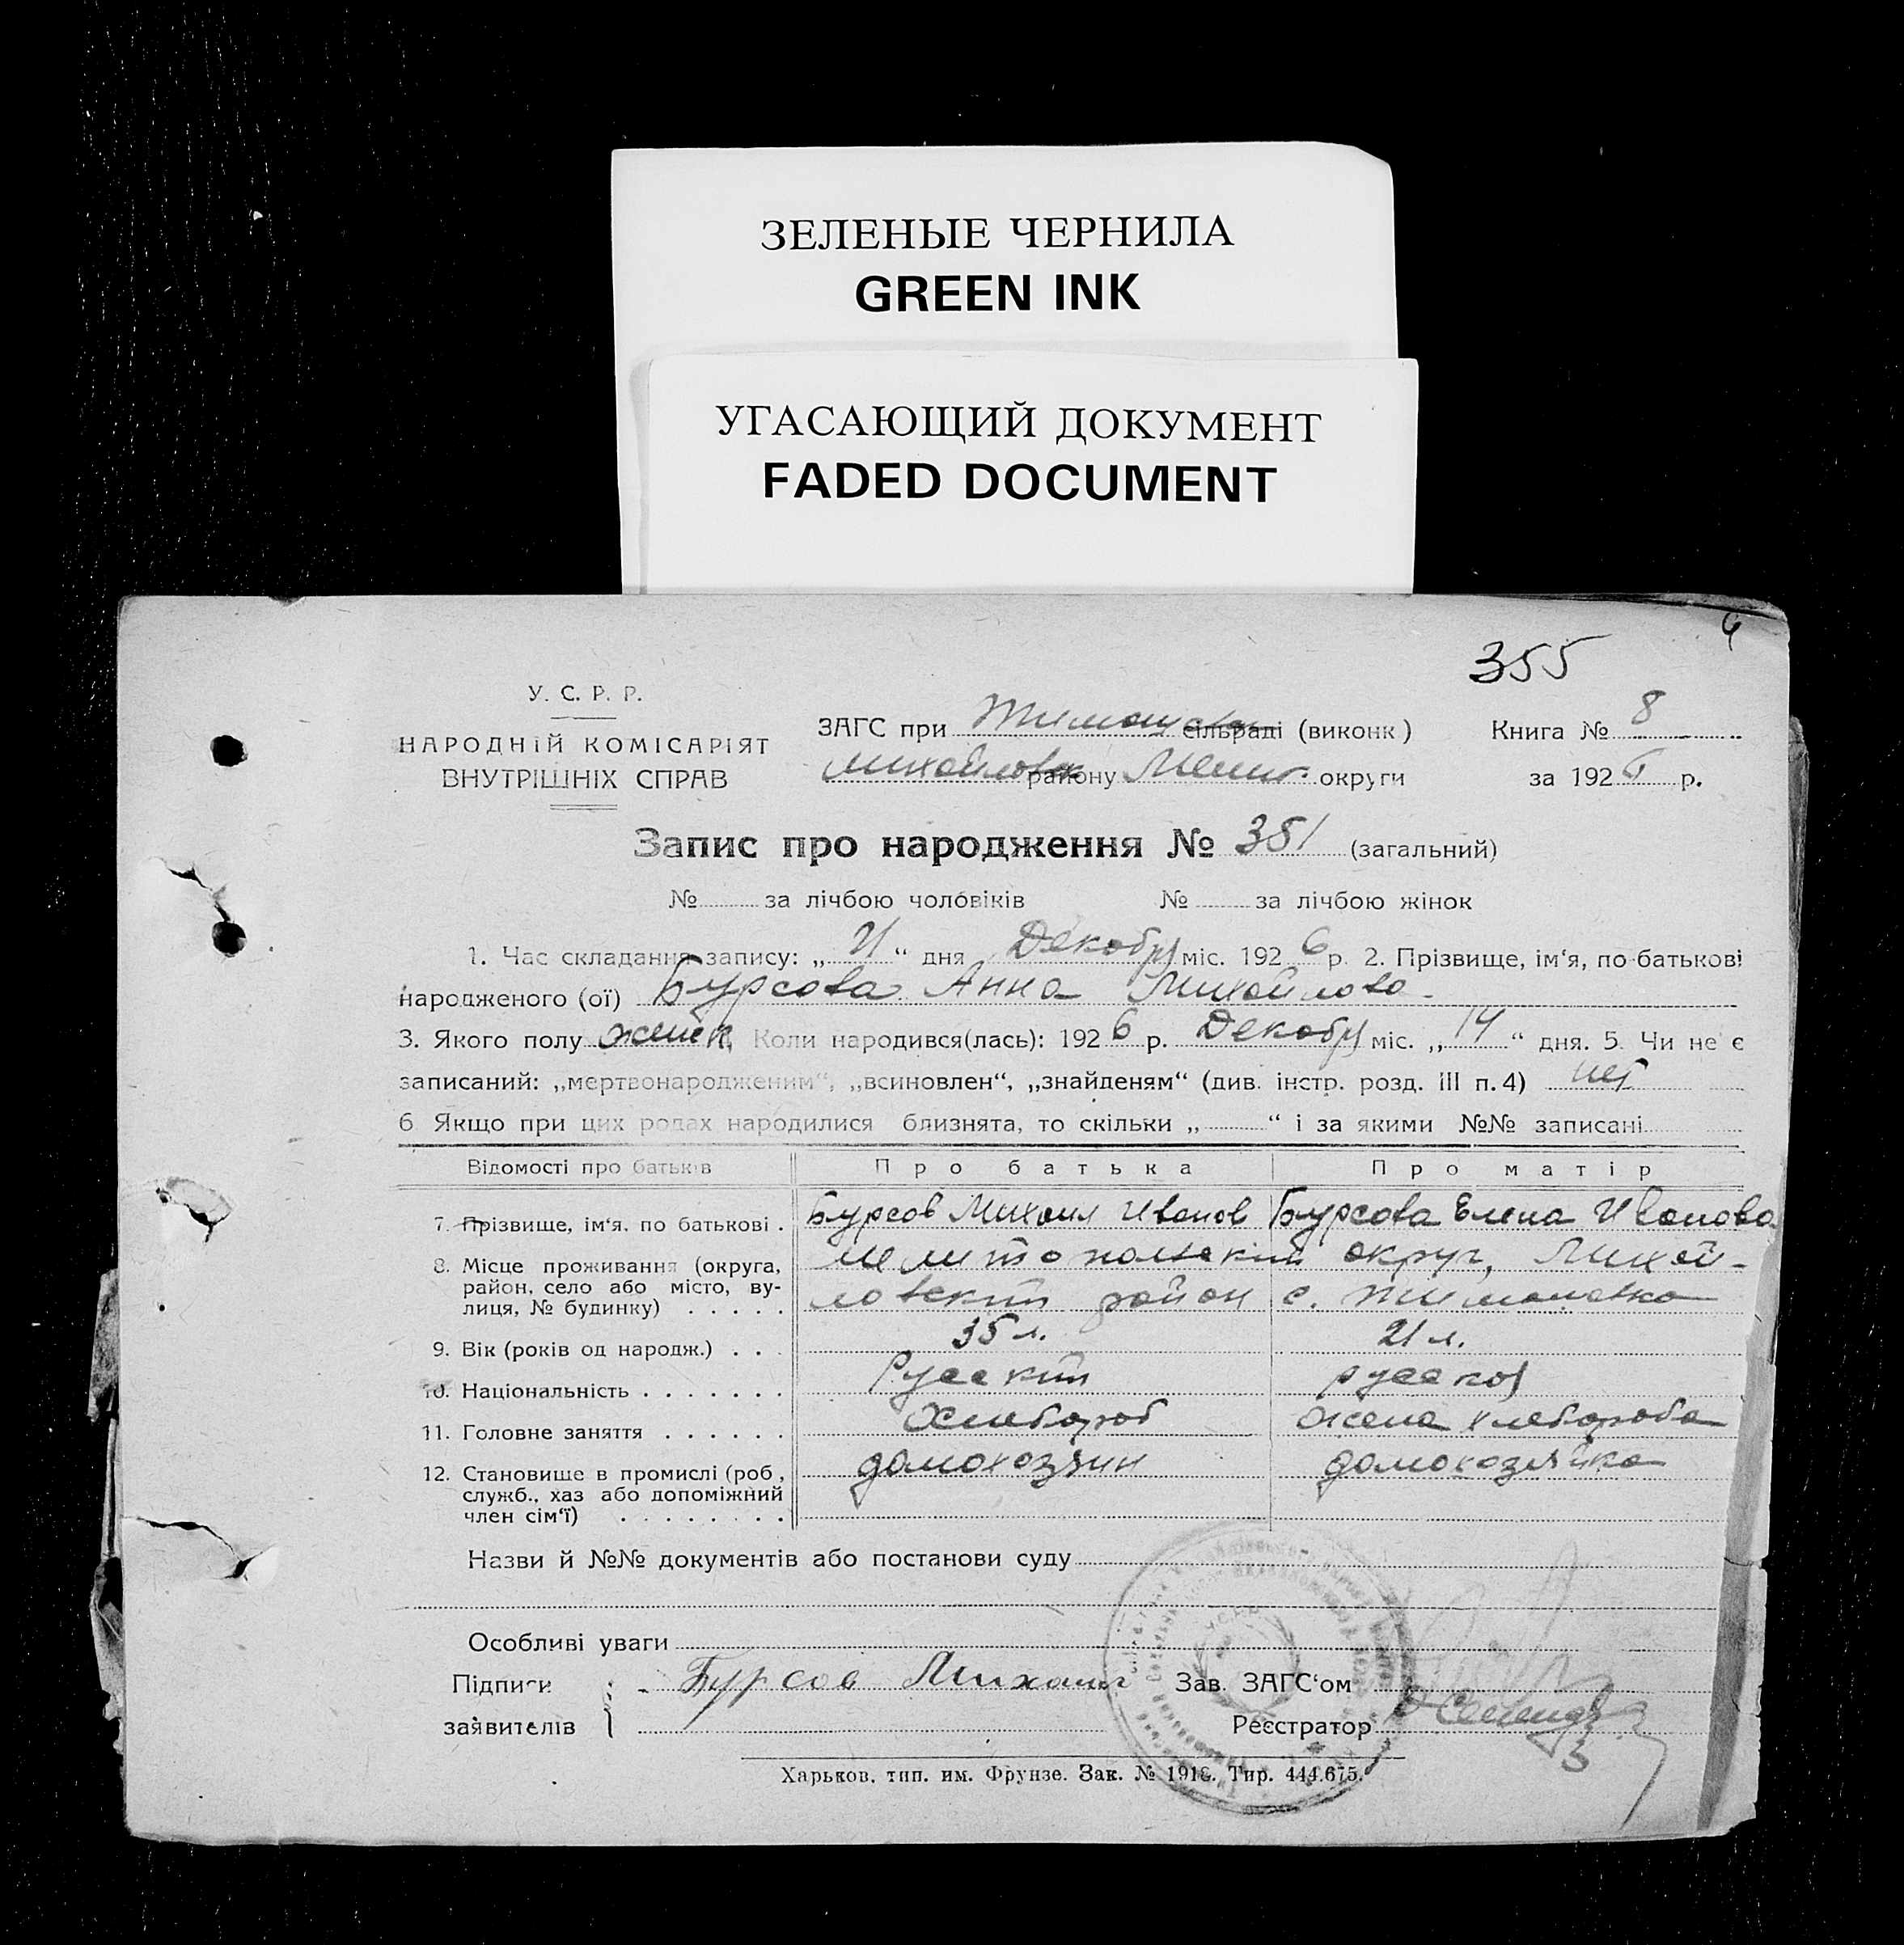 ЗЕЛЕНЫЕ ЧЕРНИЛА
GREEN INK
УГАСАЮЩИЙ ДОКУМЕНТ
FADED DOCUMENT
355
У. С. Р. Р.
НАРОДНІЙ КОМІСАРІЯТ
ВНУТРІШНІХ СПРАВ
ЗАГС при Тимош сільраді (виконк) Книга № 8
Михайловск району Мелит. округи за 1926 р.
Запис про народження № 351 (загальний)
№ за лічбою чоловіків № за лічбою жінок
1. Час складання запису: „21“ дня Декабря міс. 1926 р. 2. Прізвище, ім‘я, по-батькові
народженого (ої) Бурсова Анна Михайлова
3. Якого полу женск Коли народився(лась): 1926 р. Декабря міс. „14“ дня. 5. Чи не є
записаний: „мертвонародженим“, „всиновлен“, „знайденям“ (див. інстр. розд. III п. 4) нет
6 Якщо при цих родах народилися близнята, то скільки „ “ і за якими №№ записані
Відомості про батьків Про батька Про матір
7. Прізвище, ім‘я. по батькові . Бурсов Михаил Иванов Бурсова Елена Иванова
8. Місце проживання (округа, район, село або місто, вулиця, № будинку) . . . . . Мелитопольский округ, Михай-
ловский район с. Тимошовка
9. Вік (років од народж.) . . . 35 л. 21 л.
10. Національність . . . . . . . Русский русская
11. Головне заняття . . . . . . Хлебороб жена хлебороба
12. Становище в промислі (роб, служб., хаз або допоміжний член сім‘ї) . . . . . . . . домохозяин домохозяйка
Назви й №№ документів або постанови суду
Особливі уваги
Підписи заявителів Бурсов Михаил Зав. ЗАГС‘ом
Реєстратор
Харьков, тип. им. Фрунзе. Зак. № 1918. Тир. 444.675.